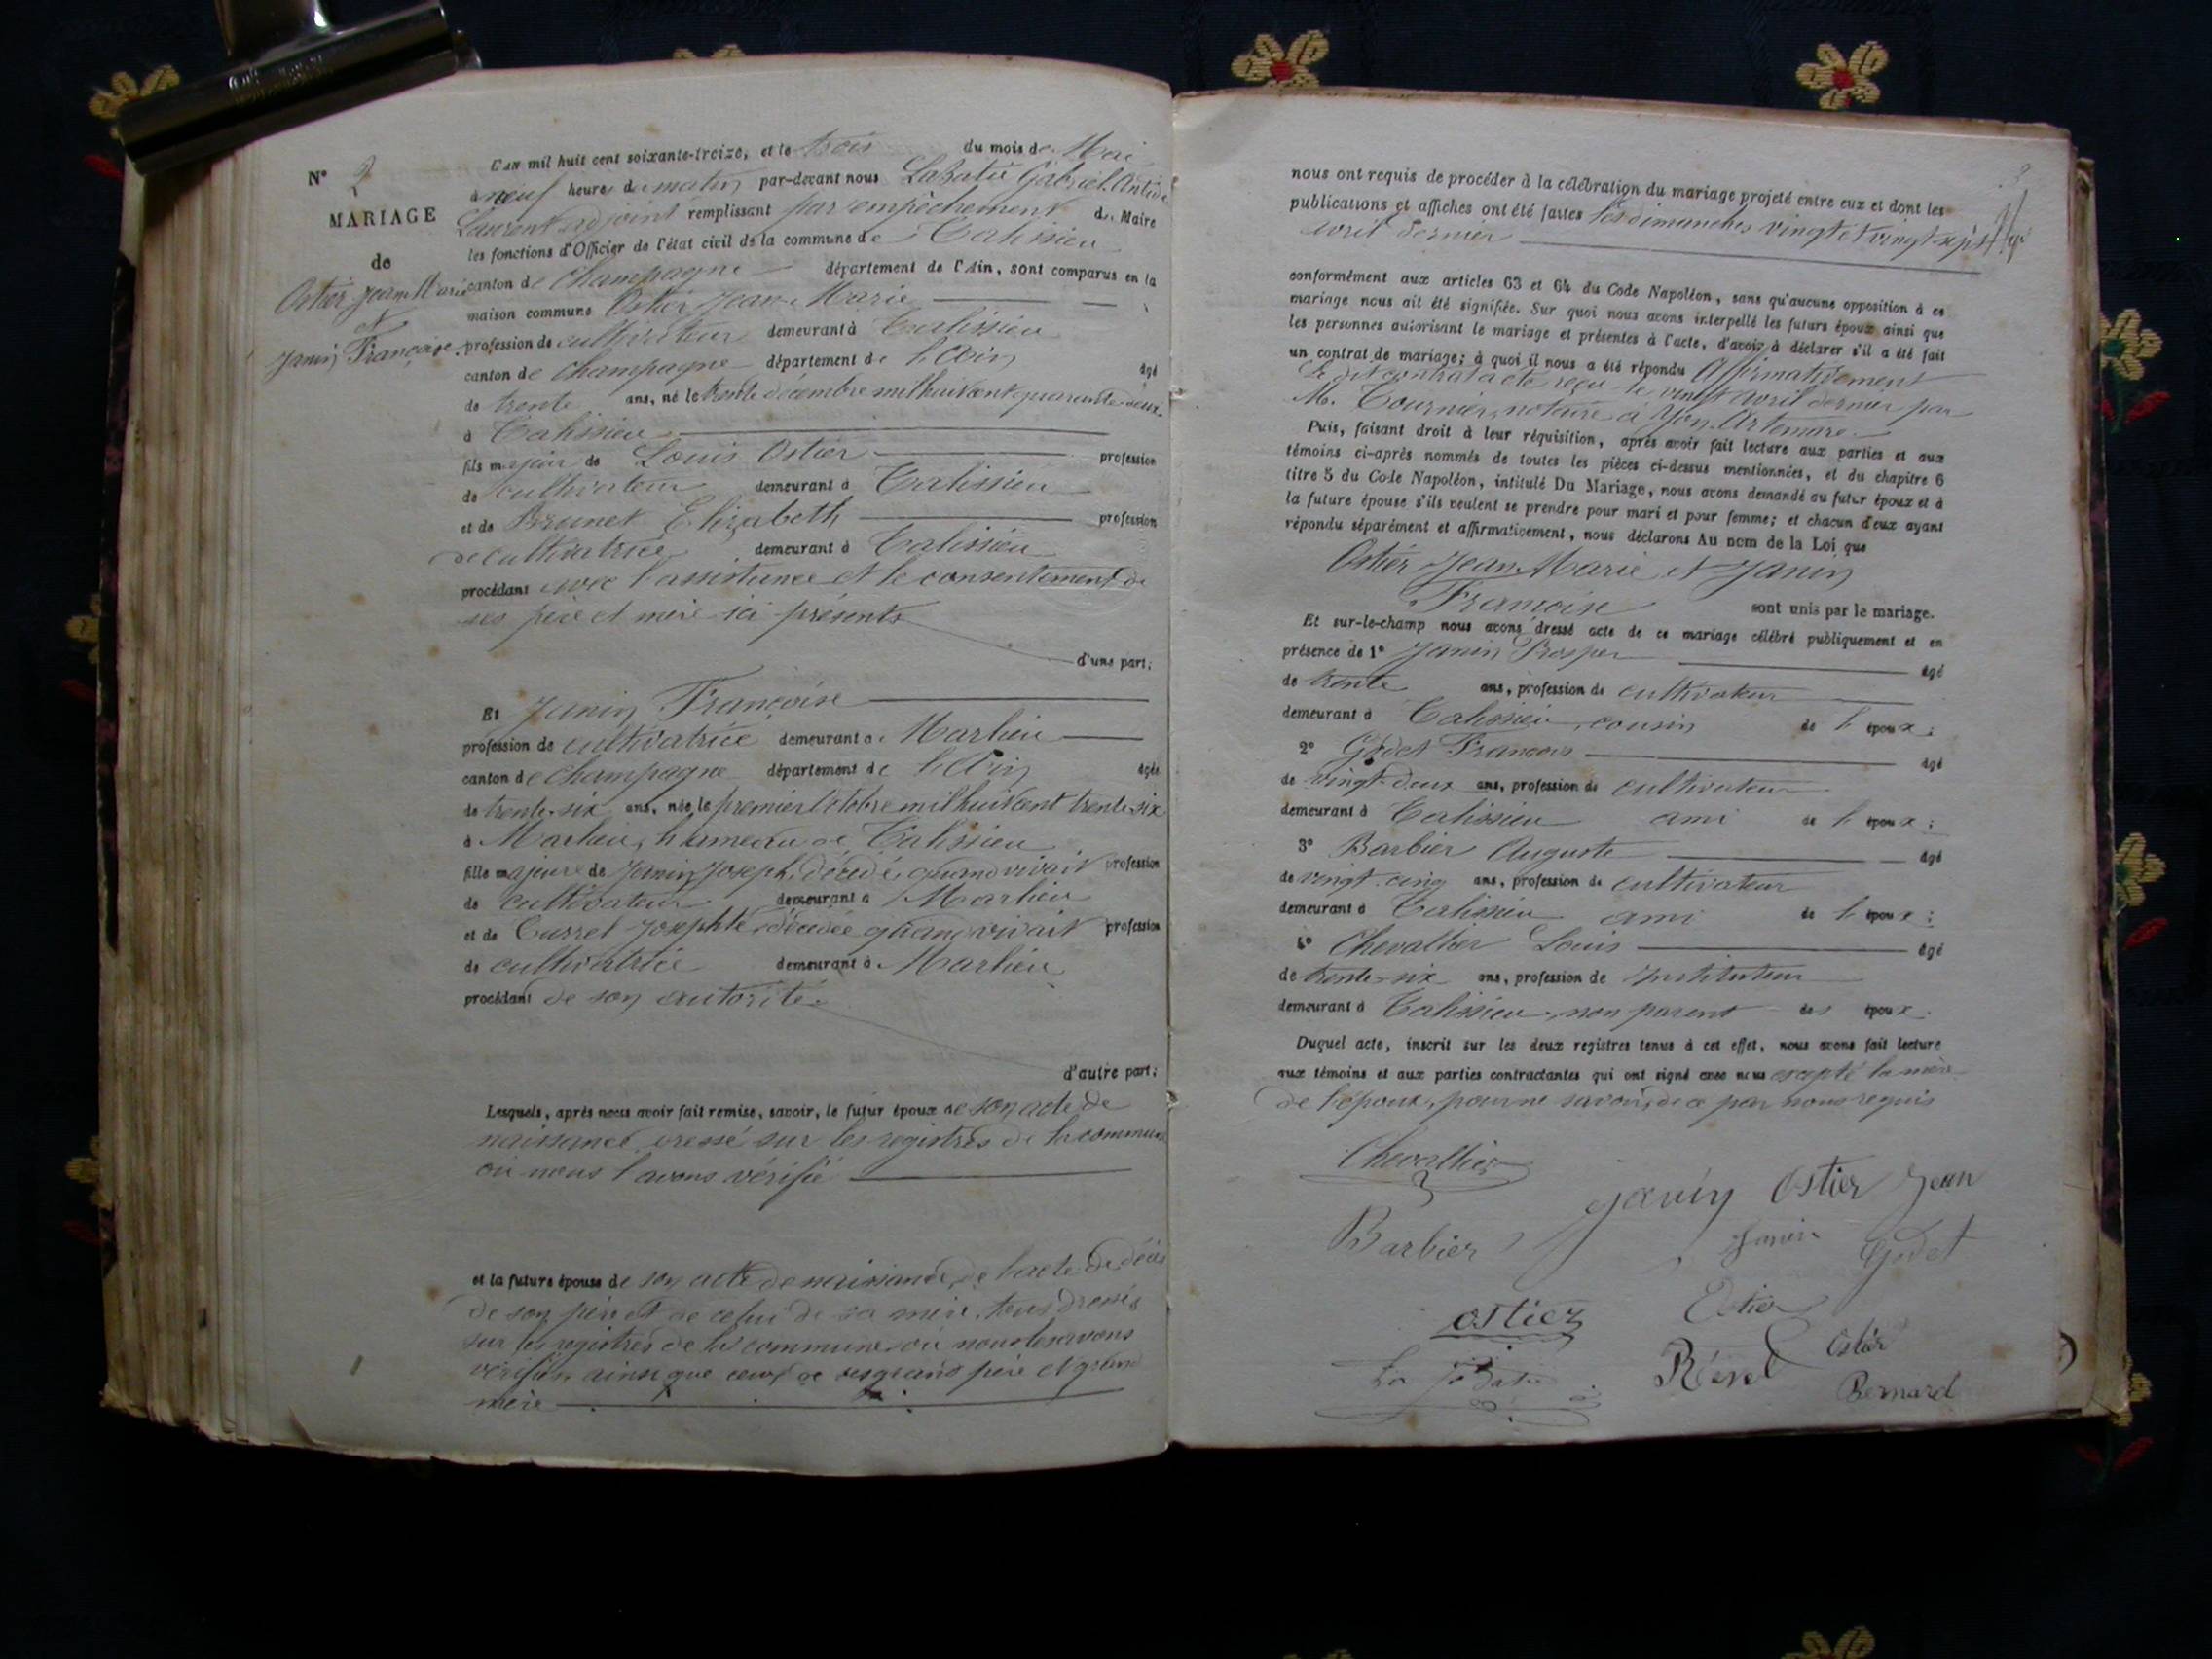 N° 2
MARIAGE
de
Ostier Jean Marie
et
Janin Françoise.
L'an mil huit cent soixante-treize, et le trois du mois de Mai
à neuf heures du matin par-devant nous Labatie Gabriel Antide
Laurent adjoint remplissant par empêchement du Maire
les fonctions d'Officier de l'état civil de la commune de Talissieu
canton de Champagne département de l'Ain, sont comparus en la
maison commune Ostier Jean Marie
profession de cultivateur demeurant à Talissieu
canton de Champagne département de l'Ain âgé
de trente ans, né le trente décembre mil huit cent quarante deux
à Talissieu
fils majeur de Louis Ostier profession
de cultivateur demeurant à Talissieu
et de Brunet Elizabeth profession
de cultivatrice demeurant à Talissieu
procédant avec l'assistance et le consentement de
ses père et mère ici présents
d'une part;
Et Janin Françoise
profession de cultivatrice demeurant à Marlieu
canton de Champagne département de l'Ain âgée
de trente-six ans, née le premier octobre mil huit cent trente-six
à Marlieu, hameau de Talissieu
fille majeure de Janin Joseph, décédé, quand vivait profession
de cultivateur demeurant à Marlieu
et de Josephte décédée quand vivait profession
de cultivatrice demeurant à Marlieu
procédant de son autorité.
d'autre part;
Lesquels, après nous avoir fait remise, savoir, le futur époux de son acte de
naissance dressé sur les registres de la commune
où nous l'avons vérifié
et la future épouse de son acte de naissance, de l'acte de décès
de son père et de celui de sa mère, tous dressés
sur les registres de la commune où nous les avons
vérifiés, ainsi que ceux de ses grand père et grand
mère
nous ont requis de procéder à la célébration du mariage projeté entre eux et dont les
publications et affiches ont été faites les dimanches vingt et vingt-sept
avril dernier
conformément aux articles 63 et 64 du Code Napoléon, sans qu'aucune opposition à ce
mariage nous ait été signifiée. Sur quoi nous avons interpellé les futurs époux ainsi que
les personnes autorisant le mariage et présentes à l'acte, d'avoir à déclarer s'il a été fait
un contrat de mariage; à quoi il nous a été répondu Affirmativement
Le dit contrat a été reçu le vingt avril dernier par
M. Tournier, notaire à Yon-Artemare.
Puis, faisant droit à leur réquisition, après avoir fait lecture aux parties et aux
témoins ci-après nommés de toutes les pièces ci-dessus mentionnées, et du chapitre 6
titre 5 du Code Napoléon, intitulé Du Mariage, nous avons demandé au futur époux et à
la future épouse s'ils veulent se prendre pour mari et pour femme; et chacun d'eux ayant
répondu séparément et affirmativement, nous déclarons Au nom de la Loi que
Ostier Jean Marie et Janin
Françoise sont unis par le mariage.
Et sur-le-champ nous avons dressé acte de ce mariage célébré publiquement et en
présence de 1° Janin Prosper âgé
de trente ans, profession de cultivateur
demeurant à Talissieu, cousin de l'époux;
2° Godet François âgé
de vingt-deux ans, profession de cultivateur
demeurant à Talissieu ami de l'époux;
3° Barbier Auguste âgé
de vingt-cinq ans, profession de cultivateur
demeurant à Talissieu ami de l'époux;
4° Chevallier Louis âgé
de trente-six ans, profession de Instituteur
demeurant à Talissieu, non parent des époux.
Duquel acte, inscrit sur les deux registres tenus à cet effet, nous avons fait lecture
aux témoins et aux parties contractantes qui ont signé avec nous excepté la mère
de l'époux, pour ne savoir, de ce par nous requis
Chevallier
janin Ostier Jean
Barbier Janin Godet
ostier Ostier
Labatie Rével Ostier
Bernard